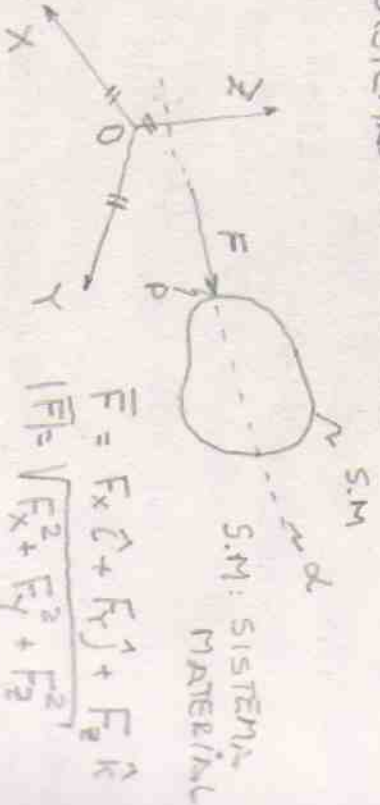 Z
F
P
S.M
α
O
X
Y
S.M: SISTEMA
MATERIAL
F̅ = Fx î + Fy ĵ + Fz k̂
|F̅| = √(Fx² + Fy² + Fz²)